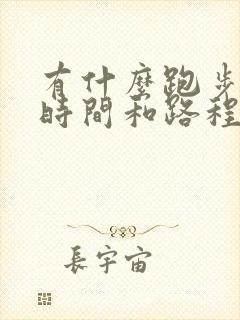 有什麼跑步
時間和路程
長宇宙